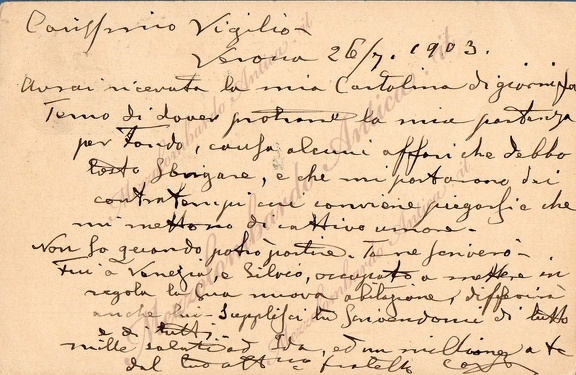 Carissimo Vigilio -
Verona 26/7. 1903.
Avrai ricevuta la mia Cartolina di giorni fa
Temo di dover protrarre la mia partenza
per Fondo, causa alcuni affari che debbo
tosto sbrigare, e che mi portarono dei
contratempi cui conviene piegarsi e che
mi mettono di cattivo umore.
Non so quando potrò partire. Te ne scriverò.
Fui a Venezia e Silvio, occupato a mettere in
regola la sua nuova abitazione, differirà
anche lui. Supplisci tu scrivendomi di tutto
e di tutti.
mille saluti ad Ida, ed un milione a te
dal tuo fratello